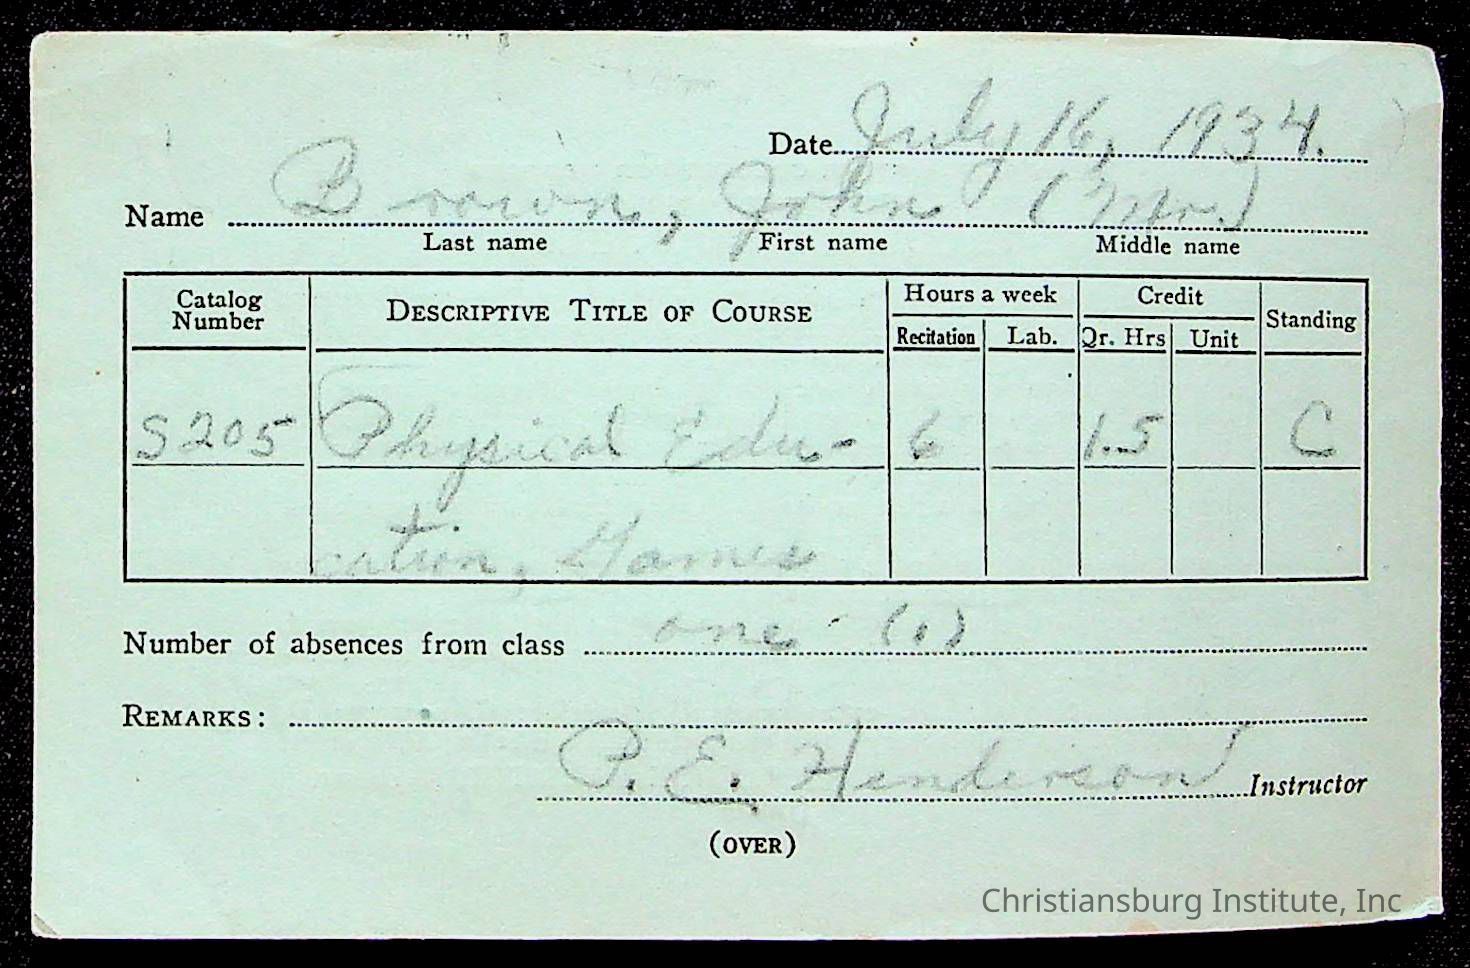 Date July 16, 1934.
Name Brown, John (Mr.)
Last name First name Middle name
Catalog Number DESCRIPTIVE TITLE OF COURSE Hours a week Credit Standing
Recitation Lab. Qr. Hrs Unit
S205 Physical Edu- 6 1.5 C
cation, Games
Number of absences from class one (1)
REMARKS:
P. E. Henderson Instructor
(OVER)
Christiansburg Institute, Inc